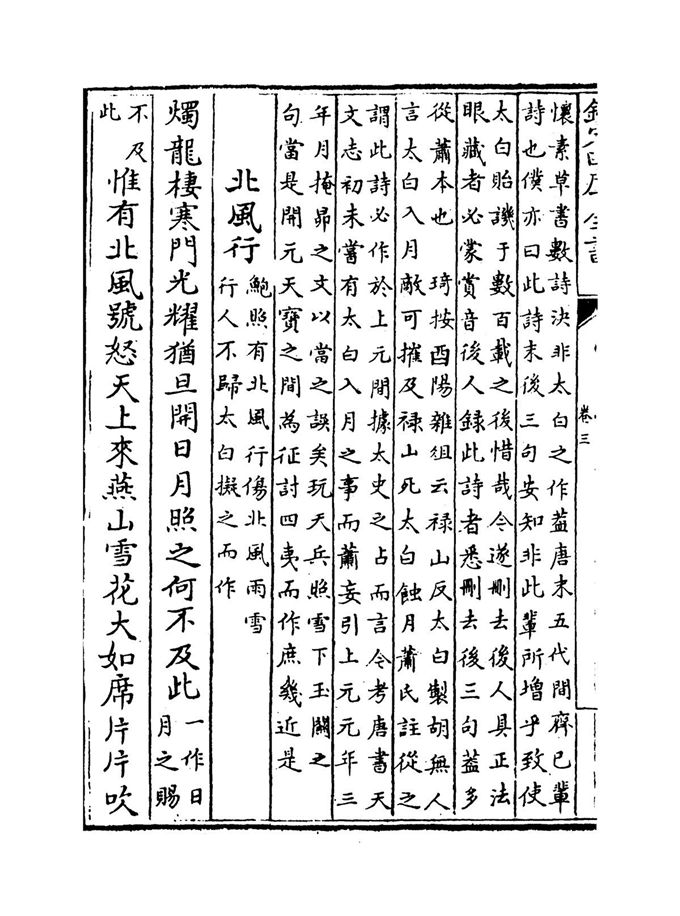 欽定四庫全書
卷三
懷素草書數詩決非太白之作葢唐末五代間齊已輩
詩也僕亦曰此詩末後三句安知非此輩所增乎致使
太白貽譏于數百載之後惜哉今遂刪去後人具正法
眼藏者必蒙賞音後人録此詩者悉刪去後三句葢多
從蕭本也 琦按酉陽雜俎云禄山反太白製胡無人
言太白入月敵可摧及禄山死太白蝕月蕭氏註從之
謂此詩必作於上元間據太史之占而言今考唐書天
文志初未嘗有太白入月之事而蕭妄引上元元年三
年月掩昴之文以當之誤矣玩天兵照雪下玉關之
句當是開元天寶之間為征討四夷而作庶幾近是
北風行
鮑照有北風行傷北風雨雪
行人不歸太白擬之而作
燭龍棲寒門光耀猶旦開日月照之何不及此
一作日
月之賜
不及
此
惟有北風號怒天上來燕山雪花大如席片片吹